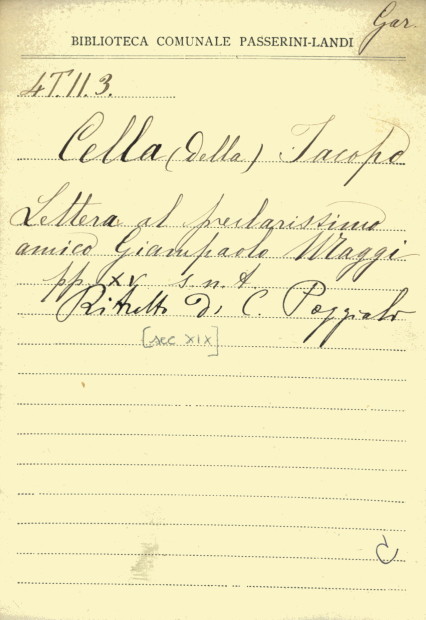 Gar.
BIBLIOTECA COMUNALE PASSERINI-LANDI
4T.11.3.
Cella (della) Jacopo
Lettera al preclarissimo
amico Giampaolo Maggi
pp. XV s. n. t.
Ritratto di C. Poggiali
[sec XIX]
C